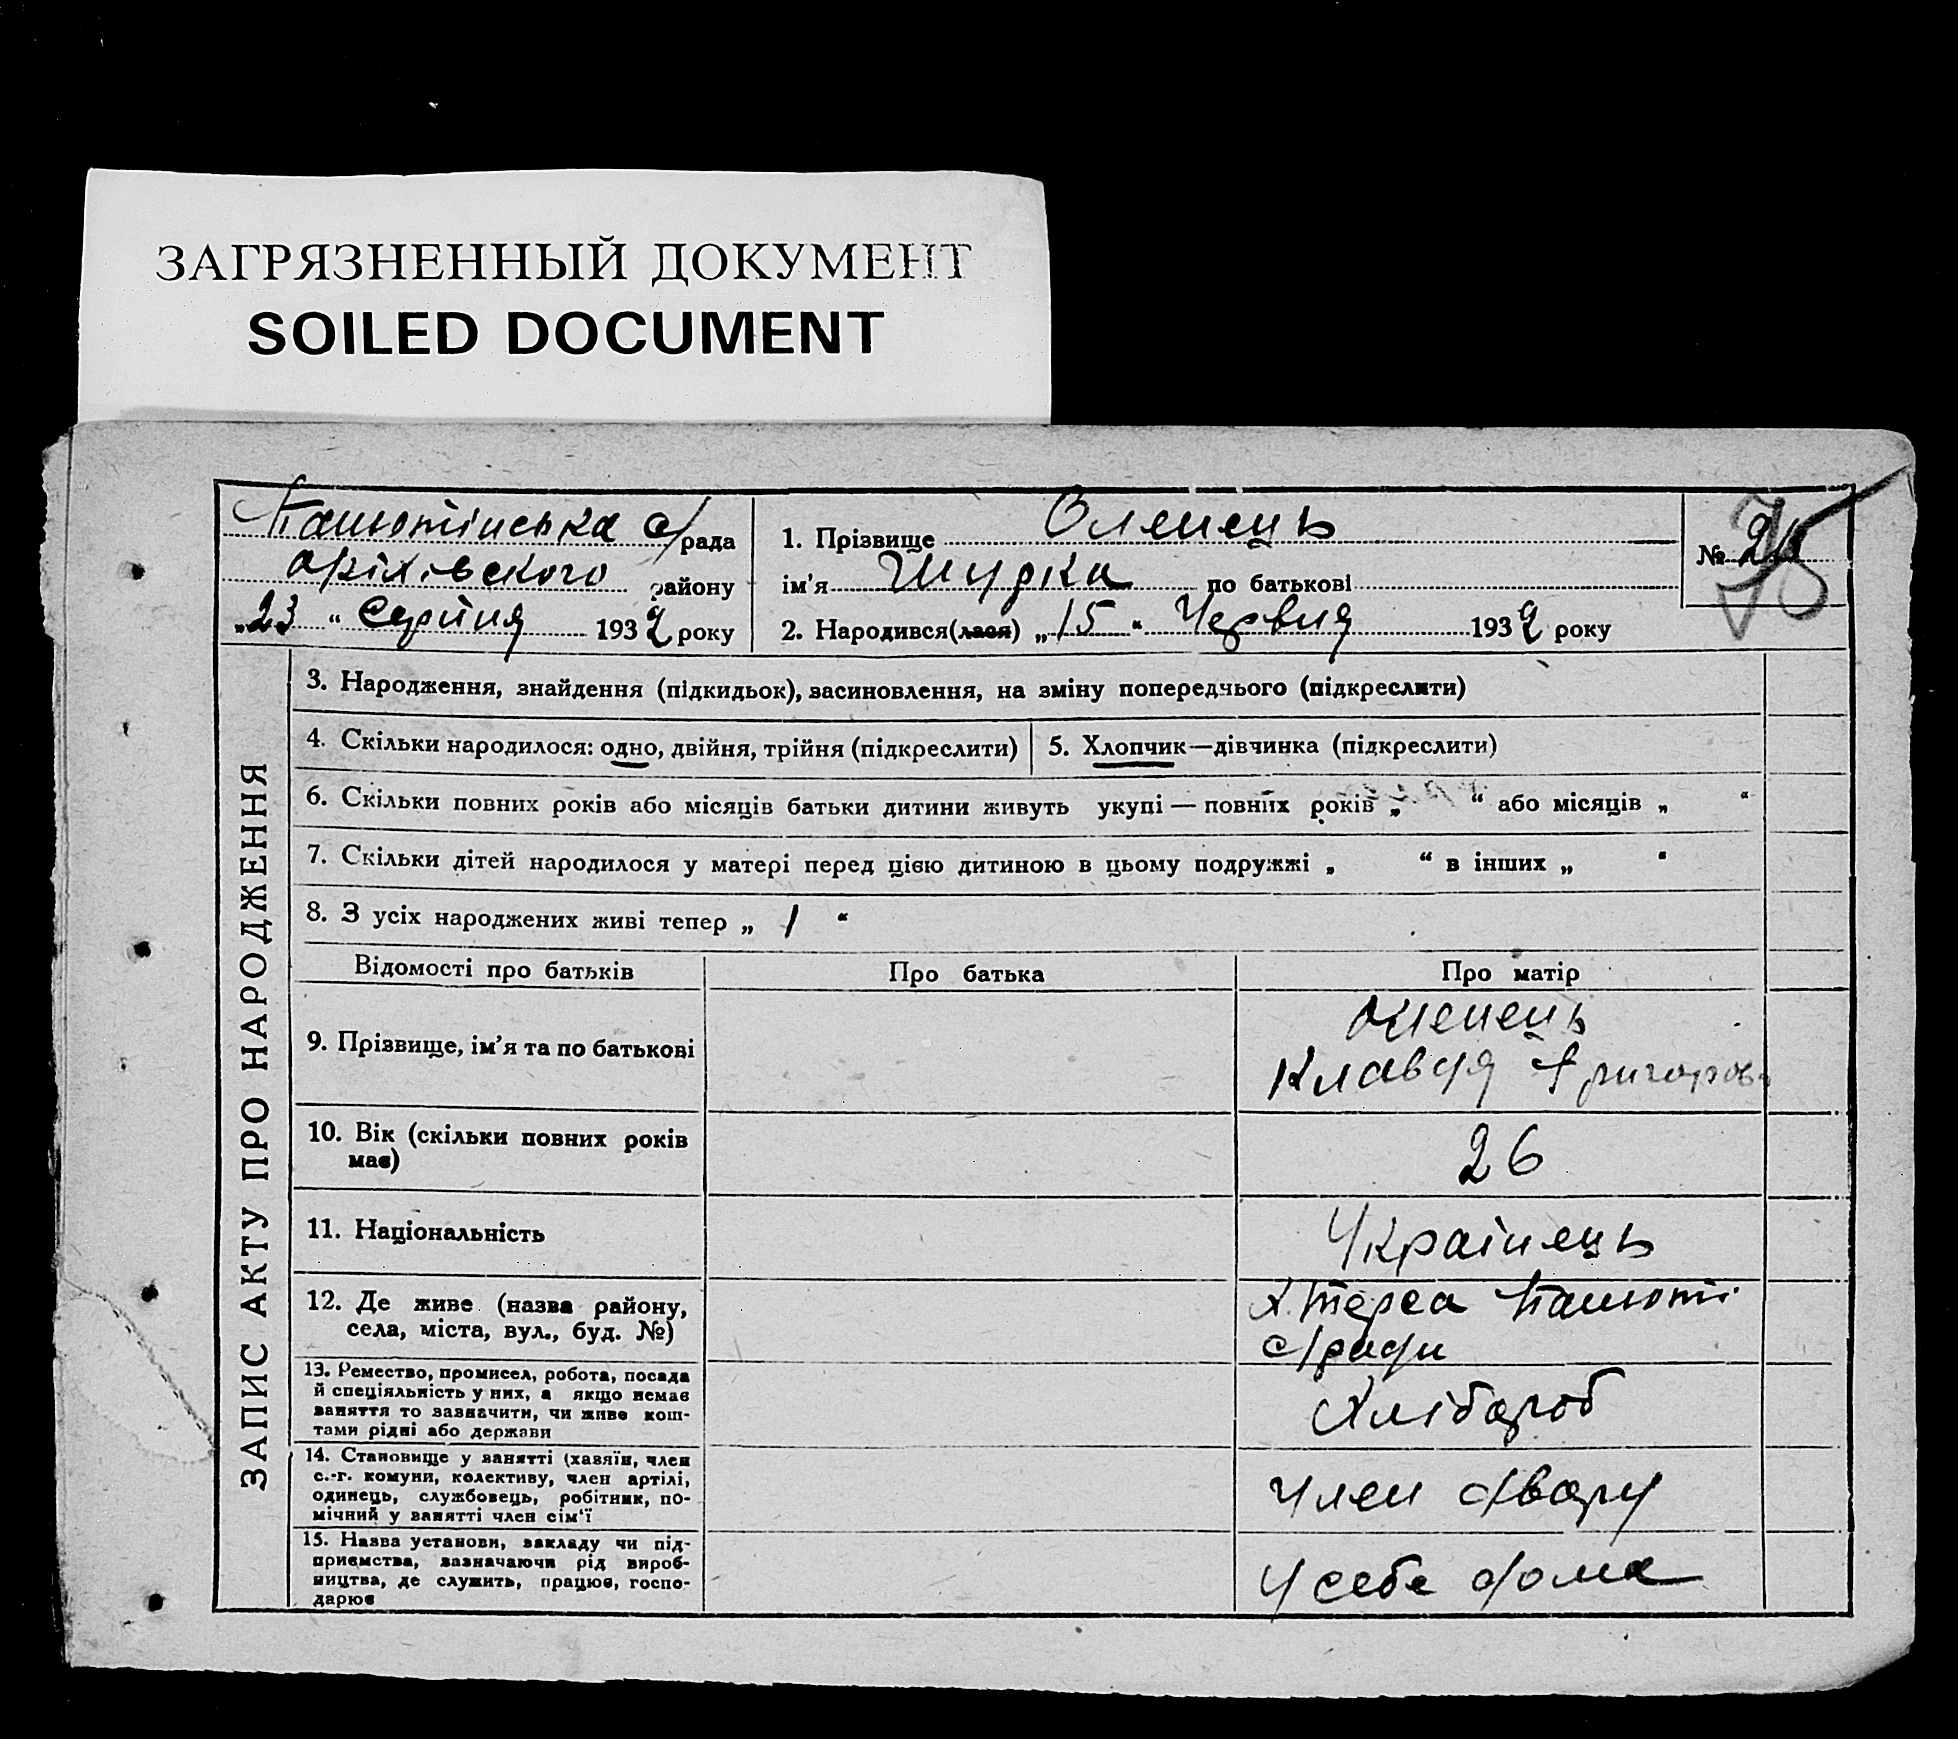 ЗАГРЯЗНЕННЫЙ ДОКУМЕНТ
SOILED DOCUMENT
Панютінська с/рада
оріхівського району
„23“ Серпня 1932 року
1. Прізвище Оленець
ім'я по батькові
2. Народився(лася) „15“ Червня 1932 року
№
ЗАПИС АКТУ ПРО НАРОДЖЕННЯ
3. Народження, знайдення (підкидьок), засиновлення, на зміну попереднього (підкреслити)
4. Скільки народилося: одно, двійня, трійня (підкреслити)
5. Хлопчик—дівчинка (підкреслити)
6. Скільки повних років або місяців батьки дитини живуть укупі — повних років „ “ або місяців „ “
7. Скільки дітей народилося у матері перед цією дитиною в цьому подружжі „ “ в інших „ “
8. З усіх народжених живі тепер „ 1 “
Відомості про батьків
Про батька
Про матір
9. Прізвище, ім'я та по батькові
Оленець
Клавдя Григоров
10. Вік (скільки повних років
має)
26
11. Національність
Українець
12. Де живе (назва району,
села, міста, вул., буд. №)
х. Терса Панюті
с/ради
13. Ремество, промисел, робота, посада
й спеціяльність у них, а якщо немає
заняття то зазначити, чи живе кош-
тами рідні або держави
Хлібороб
14. Становище у занятті (хазяїн, член
с.-г. комуни, колективу, член артілі,
одинець, службовець, робітник, по-
мічний у занятті член сім'ї
член двору
15. Назва установи, закладу чи під-
приємства, зазначаючи рід вироб-
ництва, де служить, працює, госпо-
дарює
у себе дома